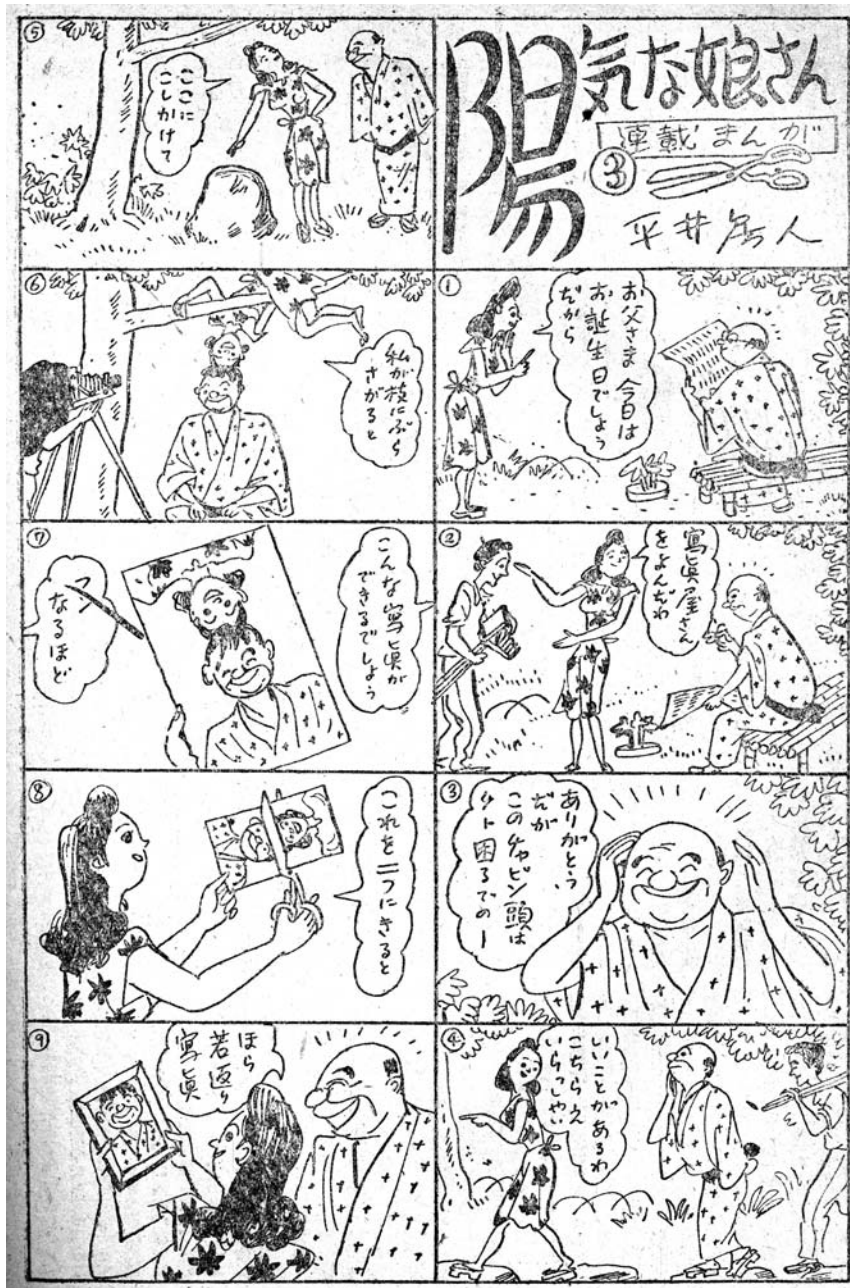 陽気な娘さん
連載まんが
③
平井房人
①
お父さま 今日は
お誕生日でしょう
だから
②
寫眞屋さん
をよんだわ
③
ありがとう
だが
このチャビン頭は
チト困るでのー
④
いいことがあるわ
こちらえ
いらっしゃい
⑤
ここに
こしかけて
⑥
私が枝にぶら
さがると
⑦
こんな寫眞が
できるでしょう
フン
なるほど
⑧
これを二つにきると
⑨
ほら
若返り
寫眞